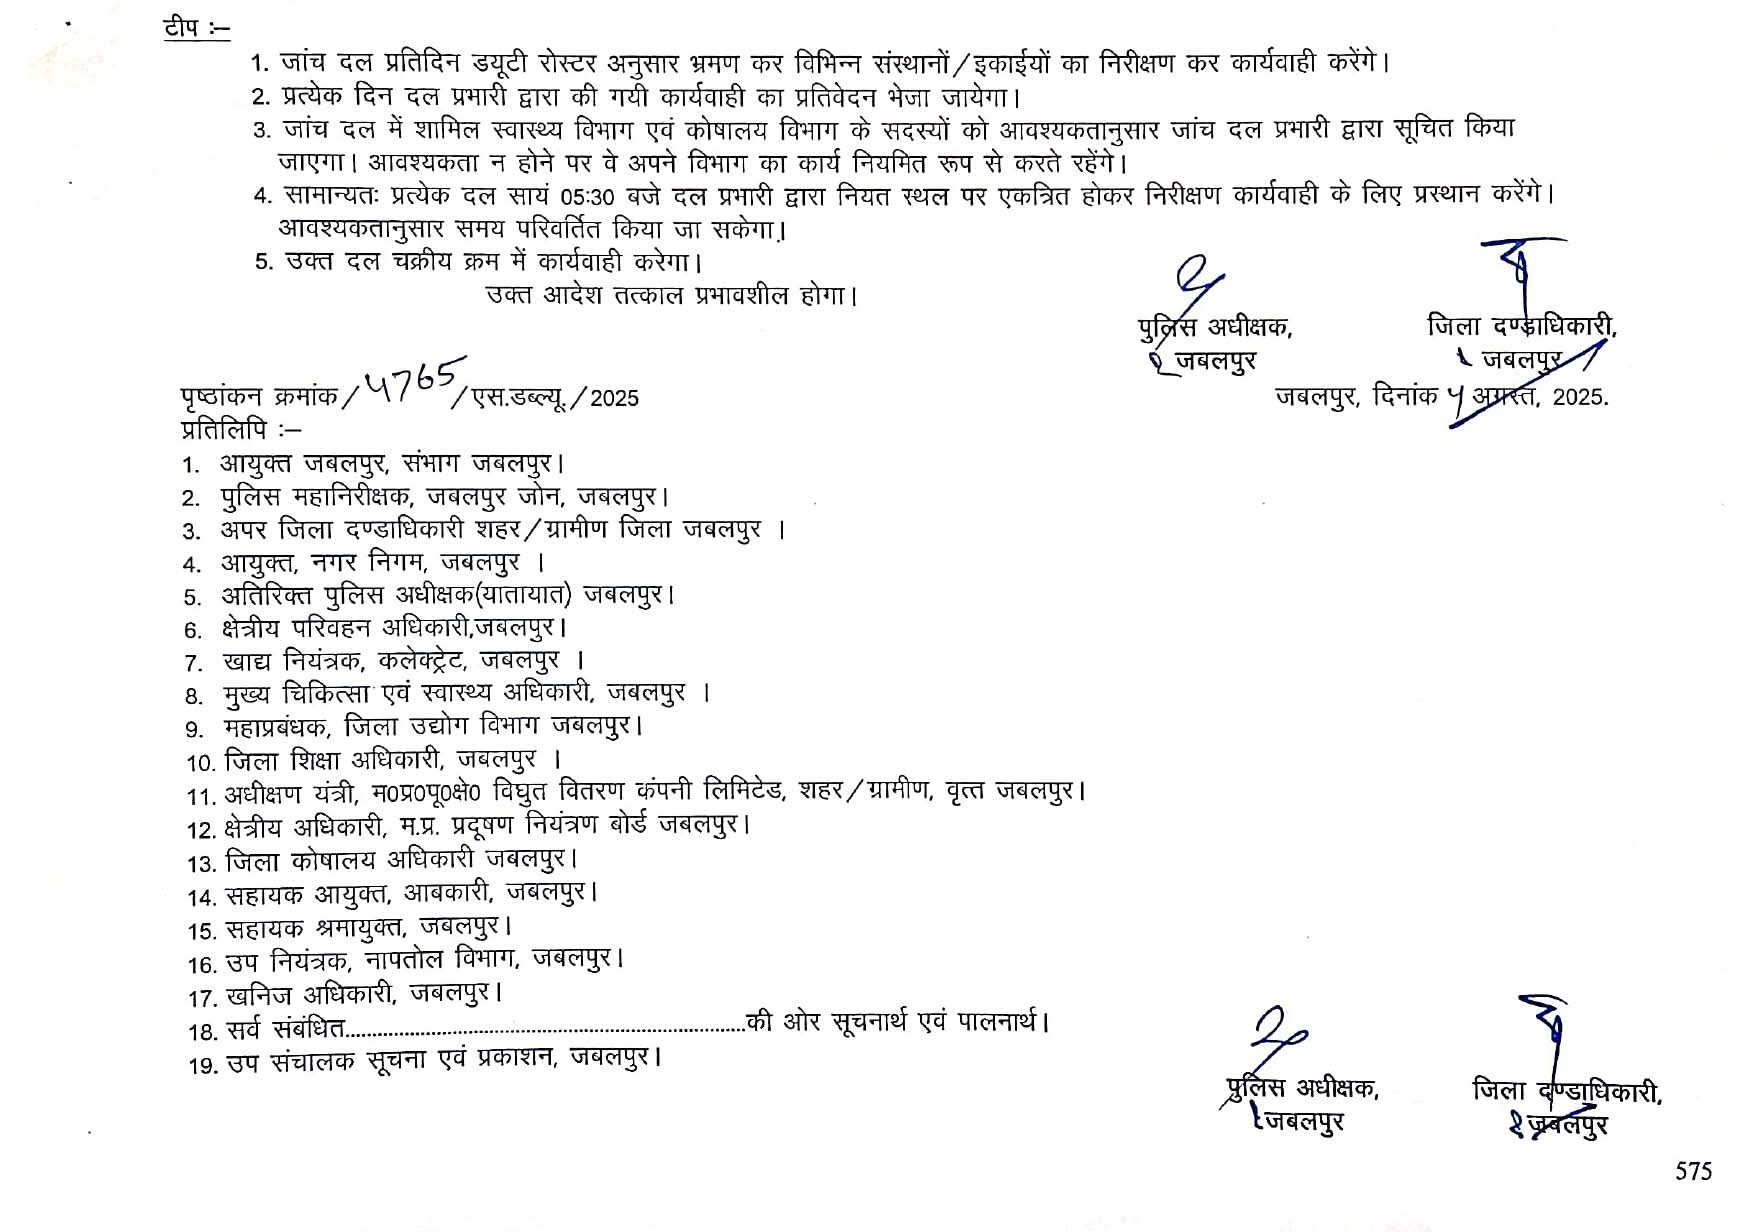 टीप :–
1. जांच दल प्रतिदिन डयूटी रोस्टर अनुसार भ्रमण कर विभिन्न संस्थानों/इकाईयों का निरीक्षण कर कार्यवाही करेंगे।
2. प्रत्येक दिन दल प्रभारी द्वारा की गयी कार्यवाही का प्रतिवेदन भेजा जायेगा।
3. जांच दल में शामिल स्वास्थ्य विभाग एवं कोषालय विभाग के सदस्यों को आवश्यकतानुसार जांच दल प्रभारी द्वारा सूचित किया
जाएगा। आवश्यकता न होने पर वे अपने विभाग का कार्य नियमित रूप से करते रहेंगे।
4. सामान्यतः प्रत्येक दल सायं 05:30 बजे दल प्रभारी द्वारा नियत स्थल पर एकत्रित होकर निरीक्षण कार्यवाही के लिए प्रस्थान करेंगे।
आवश्यकतानुसार समय परिवर्तित किया जा सकेगा.।
5. उक्त दल चक्रीय क्रम में कार्यवाही करेगा।
उक्त आदेश तत्काल प्रभावशील होगा।
पुलिस अधीक्षक, जिला दण्डाधिकारी,
जबलपुर जबलपुर
पृष्ठांकन क्रमांक/4765/एस.डब्ल्यू./2025 जबलपुर, दिनांक 4 अगस्त, 2025.
प्रतिलिपि :–
1. आयुक्त जबलपुर, संभाग जबलपुर।
2. पुलिस महानिरीक्षक, जबलपुर जोन, जबलपुर।
3. अपर जिला दण्डाधिकारी शहर/ग्रामीण जिला जबलपुर ।
4. आयुक्त, नगर निगम, जबलपुर ।
5. अतिरिक्त पुलिस अधीक्षक(यातायात) जबलपुर।
6. क्षेत्रीय परिवहन अधिकारी,जबलपुर।
7. खाद्य नियंत्रक, कलेक्ट्रेट, जबलपुर ।
8. मुख्य चिकित्सा एवं स्वास्थ्य अधिकारी, जबलपुर ।
9. महाप्रबंधक, जिला उद्योग विभाग जबलपुर।
10. जिला शिक्षा अधिकारी, जबलपुर ।
11. अधीक्षण यंत्री, म0प्र0पू0क्षे0 विघुत वितरण कंपनी लिमिटेड, शहर/ग्रामीण, वृत्त जबलपुर।
12. क्षेत्रीय अधिकारी, म.प्र. प्रदूषण नियंत्रण बोर्ड जबलपुर।
13. जिला कोषालय अधिकारी जबलपुर।
14. सहायक आयुक्त, आबकारी, जबलपुर।
15. सहायक श्रमायुक्त, जबलपुर।
16. उप नियंत्रक, नापतोल विभाग, जबलपुर।
17. खनिज अधिकारी, जबलपुर।
18. सर्व संबंधित..............................................................की ओर सूचनार्थ एवं पालनार्थ।
19. उप संचालक सूचना एवं प्रकाशन, जबलपुर।
पुलिस अधीक्षक, जिला दण्डाधिकारी,
जबलपुर जबलपुर
575